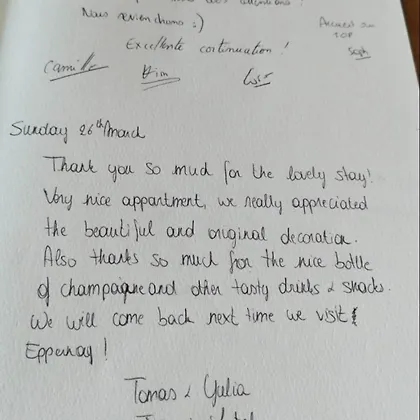 Nous reviendrons :)
Excellente continuation !
TOP
Soph
Camille
Tim
Sunday 26th March
Thank you so much for the lovely stay!
Very nice appartment, we really appreciated
the beautiful and original decoration.
Also thanks so much for the nice bottle
of champagne and other tasty drinks & snacks.
We will come back next time we visit
Eppernay !
Tomas & Yulia